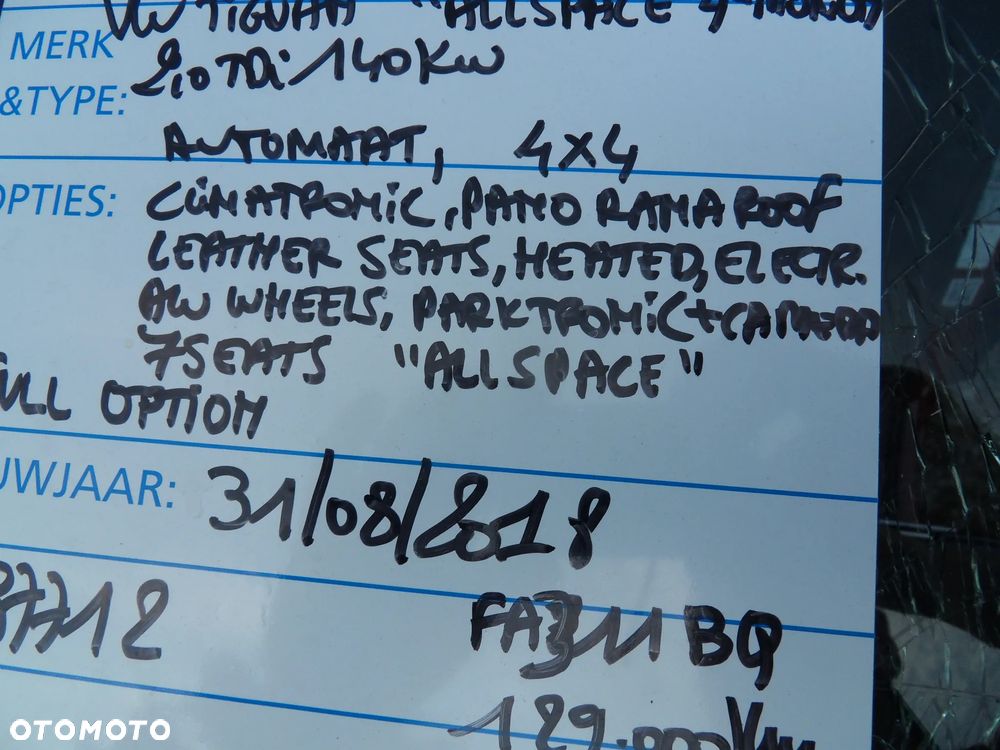 VW TIGUAN "ALLSPACE 4-MOTION
MERK
2,0 TDi 140KW
&TYPE:
AUTOMAAT, 4X4
OPTIES:
CLIMATRONIC, PANO RAMA ROOF
LEATHER SEATS, HEATED, ELECTR.
AW WHEELS, PARKTRONIC + CAMERA
7SEATS "ALLSPACE"
FULL OPTION
UWJAAR: 31/08/2018
87712 FA 311 BQ
129.000 Km
OTOMOTO